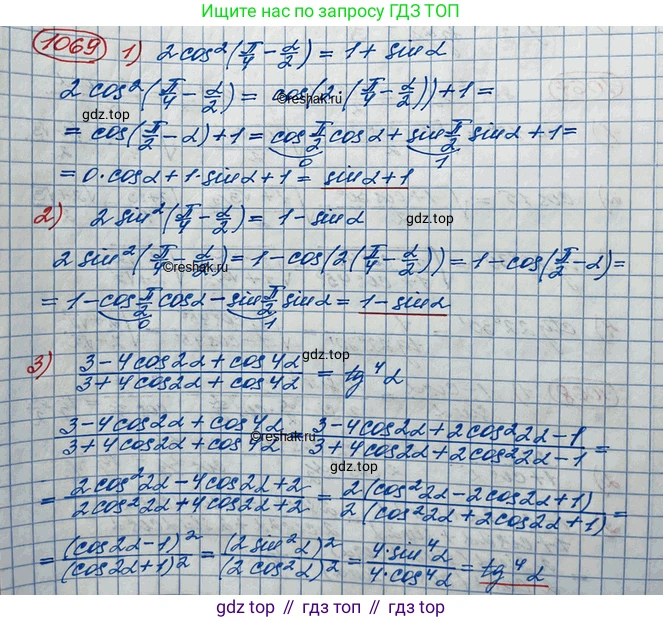 Ищите нас по запросу ГДЗ ТОП
1069 1) 2cos²(π/4 − α/2) = 1 + sinα
2cos²(π/4 − α/2) = cos(2·(π/4 − α/2)) + 1 =
gdz.top
©reshak.ru
= cos(π/2 − α) + 1 = cos π/2 cosα + sin π/2 sinα + 1 =
0 1
= 0·cosα + 1·sinα + 1 = sinα + 1
2) 2sin²(π/4 − α/2) = 1 − sinα
2sin²(π/4 − α/2) = 1 − cos(2(π/4 − α/2)) = 1 − cos(π/2 − α) =
gdz.top
= 1 − cos π/2 cosα − sin π/2 sinα = 1 − sinα
0 1
3) (3 − 4cos2α + cos4α)/(3 + 4cos2α + cos4α) = tg⁴α
gdz.top
(3 − 4cos2α + cos4α)/(3 + 4cos2α + cos4α) (3 − 4cos2α + 2cos²2α − 1)/(3 + 4cos2α + 2cos²2α − 1) =
©reshak.ru
gdz.top
= (2cos²2α − 4cos2α + 2)/(2cos²2α + 4cos2α + 2) = 2(cos²2α − 2cos2α + 1)/2(cos²2α + 2cos2α + 1) =
= (cos2α − 1)²/(cos2α + 1)² = (2sin²α)²/(2cos²α)² = 4·sin⁴α/4·cos⁴α = tg⁴α
gdz.top // гдз.топ // gdz.top